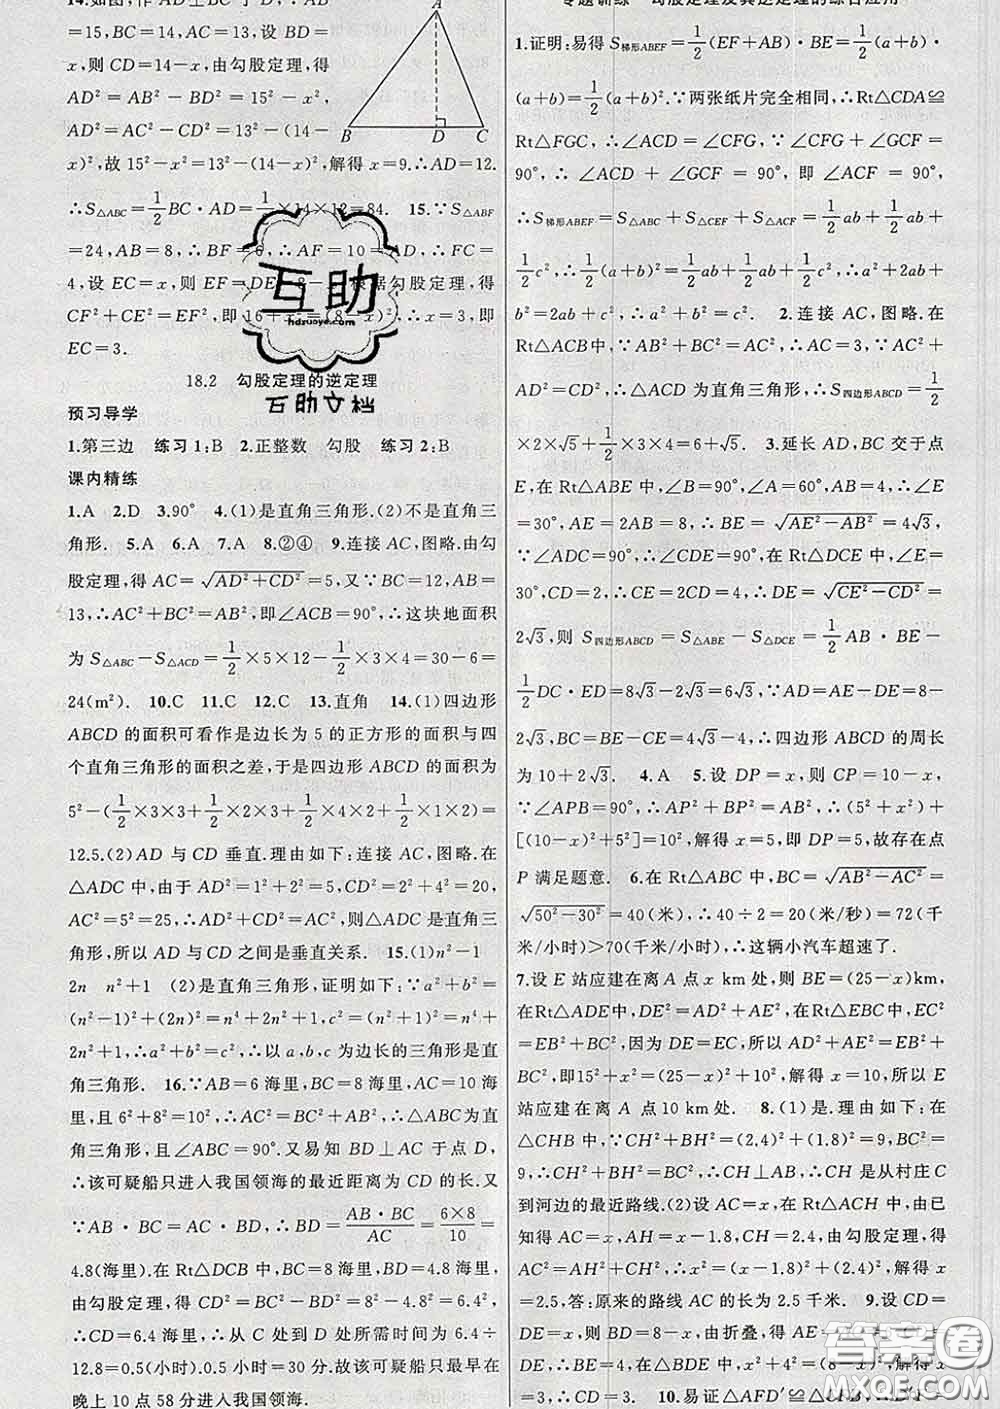 14.如图,作AD⊥BC于点D,∵AB
=15,BC=14,AC=13,设BD=
x,则CD=14-x,由勾股定理,得
AD²=AB²-BD²=15²-x²,
AD²=AC²-CD²=13²-(14-
x)²,故15²-x²=13²-(14-x)²,解得x=9.∴AD=12.
∴S△ABC=1/2BC·AD=1/2×14×12=84. 15.∵S△ABF
=24,AB=8,∴BF=6,∴AF=10=AD,∴FC=
4,设EC=x,则EF=DE=8-x,根据勾股定理,得
CF²+CE²=EF²,即16+x²=(8-x)²,∴x=3,即
EC=3.
A
B
D
C
18.2 勾股定理的逆定理
预习导学
1.第三边 练习1:B 2.正整数 勾股 练习2:B
课内精练
1.A 2.D 3.90° 4.(1)是直角三角形.(2)不是直角三
角形. 5.A 6.A 7.A 8.②④ 9.连接AC,图略.由勾
股定理,得AC=√(AD²+CD²)=5,又∵BC=12,AB=
13,∴AC²+BC²=AB²,即∠ACB=90°,∴这块地面积
为S△ABC-S△ACD=1/2×5×12-1/2×3×4=30-6=
24(m²). 10.C 11.C 12.C 13.直角 14.(1)四边形
ABCD的面积可看作是边长为5的正方形的面积与四
个直角三角形的面积之差,于是四边形ABCD的面积为
5²-(1/2×3×3+1/2×2×3+1/2×4×2+1/2×1×2)=
12.5.(2)AD与CD垂直.理由如下:连接AC,图略.在
△ADC中,由于AD²=1²+2²=5,CD²=2²+4²=20,
AC²=5²=25,∴AD²+CD²=AC²,则△ADC是直角三
角形,所以AD与CD之间是垂直关系. 15.(1)n²-1
2n n²+1 (2)是直角三角形,证明如下:∵a²+b²=
(n²-1)²+(2n)²=n⁴+2n²+1,c²=(n²+1)²=n⁴+
2n²+1,∴a²+b²=c²,∴以a,b,c为边长的三角形是直
角三角形. 16.∵AB=6海里,BC=8海里,AC=10海
里,且6²+8²=10²,∴BC²+AB²=AC²,∴△ABC为直
角三角形,且∠ABC=90°.又易知BD⊥AC于点D,
∴该可疑船只进入我国领海的最近距离为CD的长.又
∵AB·BC=AC·BD,∴BD=AB·BC/AC=6×8/10=
4.8(海里).在Rt△DCB中,BC=8海里,BD=4.8海里,
由勾股定理,得CD²=BC²-BD²=8²-4.8²=6.4²,
∴CD=6.4海里,∴从C处到D处所需时间为6.4÷
12.8=0.5(小时).0.5小时=30分.故该可疑船只最早在
晚上10点58分进入我国领海.
专题训练 勾股定理及其逆定理的综合应用
1.证明:易得S梯形ABEF=1/2(EF+AB)·BE=1/2(a+b)·
(a+b)=1/2(a+b)².∵两张纸片完全相同,∴Rt△CDA≌
Rt△FGC,∴∠ACD=∠CFG,∵∠CFG+∠GCF=
90°,∴∠ACD+∠GCF=90°,即∠ACF=90°,
∴S梯形ABEF=S△ABC+S△CEF+S△ACF=1/2ab+1/2ab+
1/2c²,∴1/2(a+b)²=1/2ab+1/2ab+1/2c²,∴a²+2ab+
b²=2ab+c²,∴a²+b²=c². 2.连接AC,图略.在
Rt△ABC中,∵AB²+BC²=AC²,∴AC=√5,又∵
AD²=AC²+CD²,∴△ACD为直角三角形,∴S四边形ABCD=1/2
×2×√5+1/2×3×4=6+√5. 3.延长AD,BC交于点
E,在Rt△ABE中,∠B=90°,∠A=60°,AB=4,∴∠E
=30°,AE=2AB=8,∴BE=√(AE²-AB²)=4√3,
∵∠ADC=90°,∴∠CDE=90°,在Rt△DCE中,∠E=
30°,CD=2,∴CE=2CD=4,∴DE=√(CE²-CD²)=
2√3,则S四边形ABCD=S△ABE-S△DCE=1/2AB·BE-
1/2DC·ED=8√3-2√3=6√3.∵AD=AE-DE=8-
2√3,BC=BE-CE=4√3-4,∴四边形ABCD的周长
为10+2√3. 4.A 5.设DP=x,则CP=10-x,
∵∠APB=90°,∴AP²+BP²=AB²,∴(5²+x²)+
[(10-x)²+5²]=10²,解得x=5,即DP=5,故存在点
P满足题意. 6.在Rt△ABC中,BC=√(AB²-AC²)=
√(50²-30²)=40(米),∴40÷2=20(米/秒)=72(千
米/小时)>70(千米/小时),∴这辆小汽车超速了.
7.设E站应建在离A点x km处,则BE=(25-x)km,
在Rt△ADE中,DE²=AD²+AE²,在Rt△BCE中,
EC²=EB²+BC²,因为DE=EC,所以AD²+AE²=EB²+
BC²,即15²+x²=(25-x)²+10²,解得x=10,所以E
站应建在离A点10 km处. 8.(1)是.理由如下:在
△CHB中,∵CH²+BH²=(2.4)²+(1.8)²=9,BC²=
9,∴CH²+BH²=BC²,∴CH⊥AB,∴CH是从村庄C
到河边的最近路线.(2)设AC=x,在Rt△ACH中,由已
知得AC=x,AH=x-1.8,CH=2.4,由勾股定理,得
AC²=AH²+CH²,∴x²=(x-1.8)²+(2.4)²,解得x
=2.5,答:原来的路线AC的长为2.5千米. 9.设CD=
DE=x,则BD=8-x,由折叠,得AE=
在△BDE中,x²+4²=(8-x)²,解得x
=3,∴CD=3. 10.易证△AFD′≌△CFB,∴D′F
互助
hdzuoye.com
互助文档
答案圈
MXQE.COM